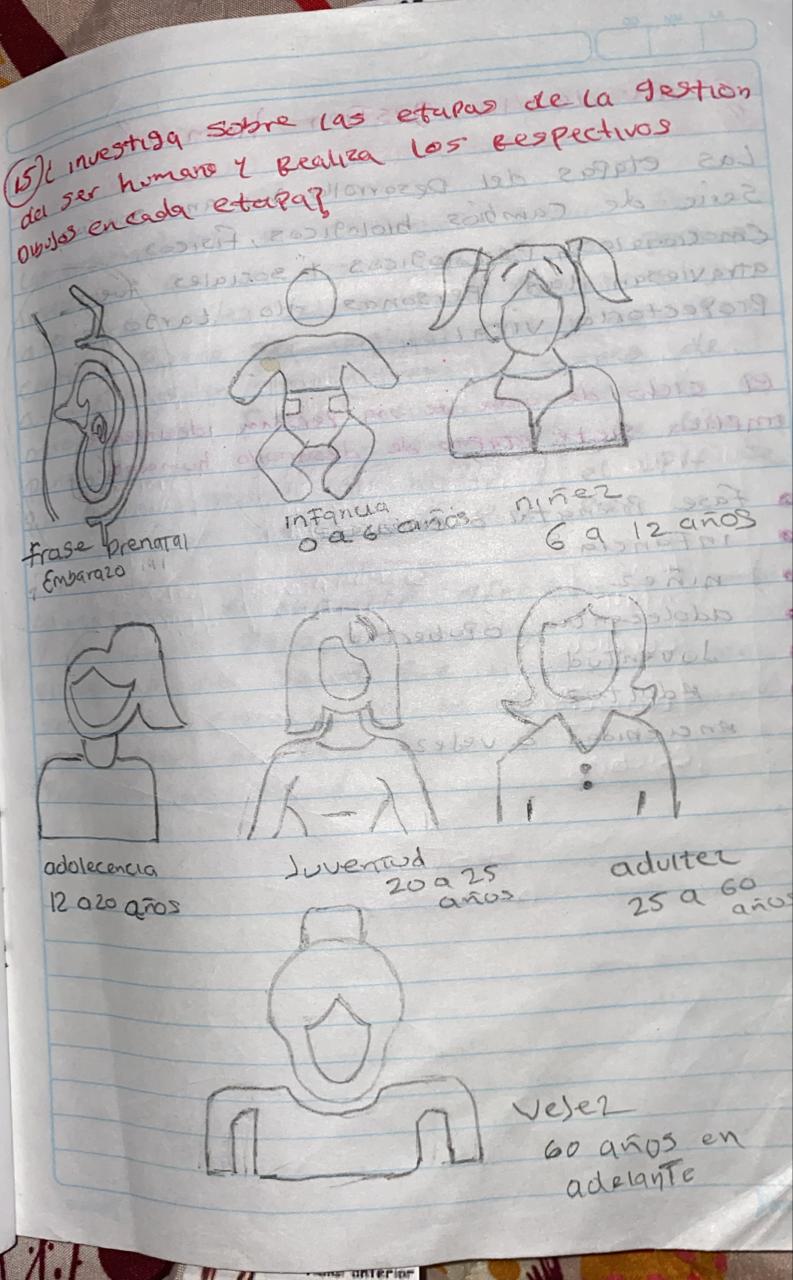 15) ¿ investiga sobre las etapas de la gestion
del ser humano y Realiza los Respectivos
Dibujos en cada etapa?
frase prenatal
Embarazo
infancia
0 a 6 años
niñez
6 a 12 años
adolecencia
12 a 20 años
Juventud
20 a 25
años
adultez
25 a 60
años
vejez
60 años en
adelante
anterior